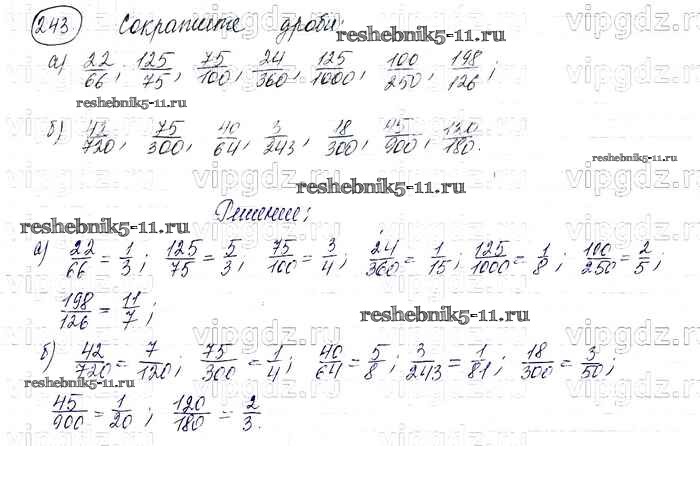 243. Сократите дроби:
а) 22/66, 125/75, 75/100, 24/360, 125/1000, 100/250, 198/126;
б) 42/720, 75/300, 40/64, 3/243, 18/300, 45/900, 120/180.
Решение:
а) 22/66 = 1/3; 125/75 = 5/3; 75/100 = 3/4; 24/360 = 1/15; 125/1000 = 1/8; 100/250 = 2/5;
198/126 = 11/7;
б) 42/720 = 7/120; 75/300 = 1/4; 40/64 = 5/8; 3/243 = 1/81; 18/300 = 3/50;
45/900 = 1/20; 120/180 = 2/3.
reshebnik5-11.ru
reshebnik5-11.ru
reshebnik5-11.ru
reshebnik5-11.ru
reshebnik5-11.ru
reshebnik5-11.ru
reshebnik5-11.ru
vipgdz.ru
vipgdz.ru
vipgdz.ru
vipgdz.ru